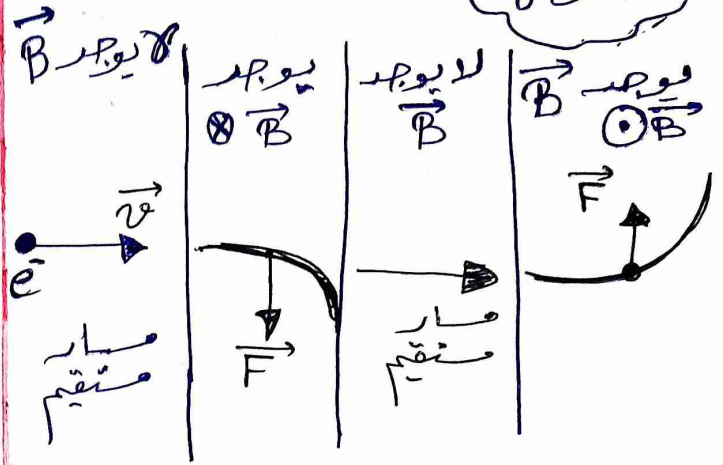 لا يوجد B
v
e⁻
مسار
مستقيم
يوجد
⊗ B
F
لا يوجد
B
مسار
مستقيم
يوجد B
⊙ B
F